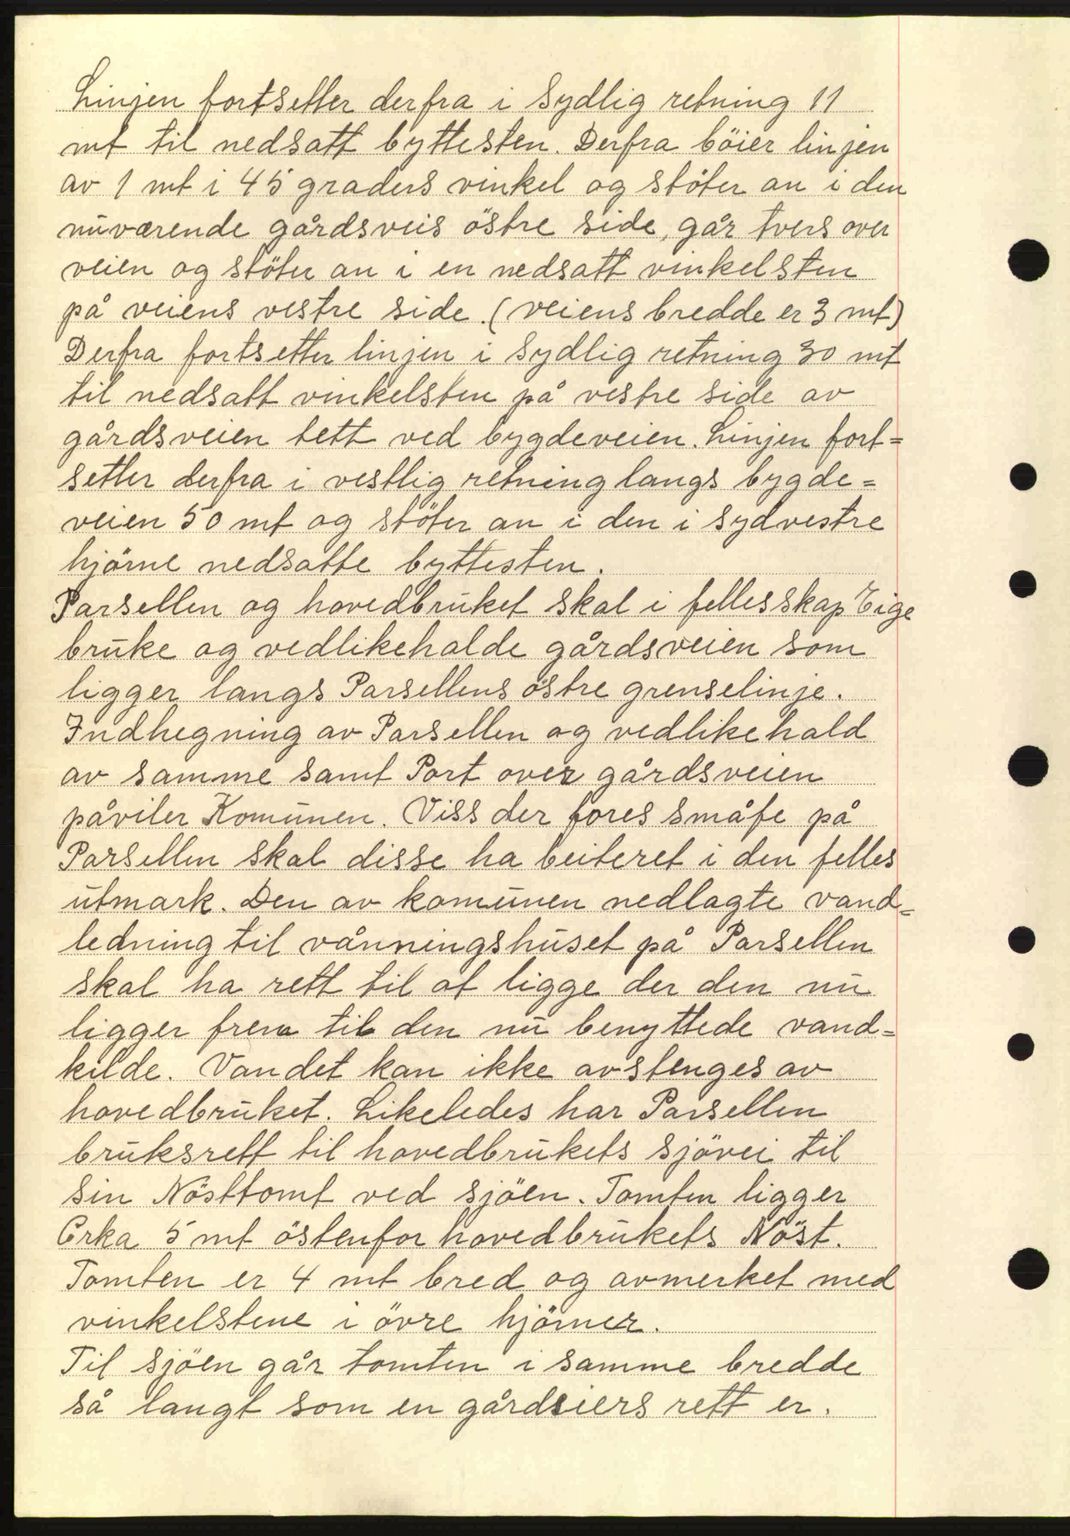 Linjen fortsetter derfra i Sydlig retning 11
mt til nedsatt byttesten. Derfra böier linjen
av 1 mt i 45 graders vinkel og stöter an i den
nuværende gårdsveis östre side, går tvers over
veien og stöter an i en nedsatt vinkelsten
på veiens vestre side. (veiens bredde er 3 mt)
Derfra fortsetter linjen i Sydlig retning 30 mt
til nedsatt vinkelsten på vestre side av
gårdsveien tett ved bygdeveien. Linjen fort=
setter derfra i vestlig retning langs bygde=
veien 50 mt og stöter an i den i sydvestre
hjörne nedsatte byttesten.
Parsellen og hovedbruket skal i fellesskap Eige
bruke og vedlikeholde gårdsveien som
ligger langs Parsellens östre grenselinje.
Indhegning av Parsellen og vedlikehald
av samme samt Port over gårdsveien
påviler Komunen. Viss der fores småfe på
Parsellen skal disse ha beiteret i den felles
utmark. Den av komunen nedlagte vand=
ledning til vånningshuset på Parsellen
skal ha rett til at ligge der den nu
ligger frem til den nu benyttede vand=
kilde. Vandet kan ikke avstenges av
hovedbruket. Likeledes har Parsellen
bruksrett til hovedbrukets sjövei til
sin Nösttomt ved sjöen. Tomten ligger
Crka 5 mt östenfor hovedbrukets Nöst.
Tomten er 4 mt bred og avmerket med
vinkelstene i övre hjörner.
Til sjöen går tomten i samme bredde
så langt som en gårdeiers rett er.